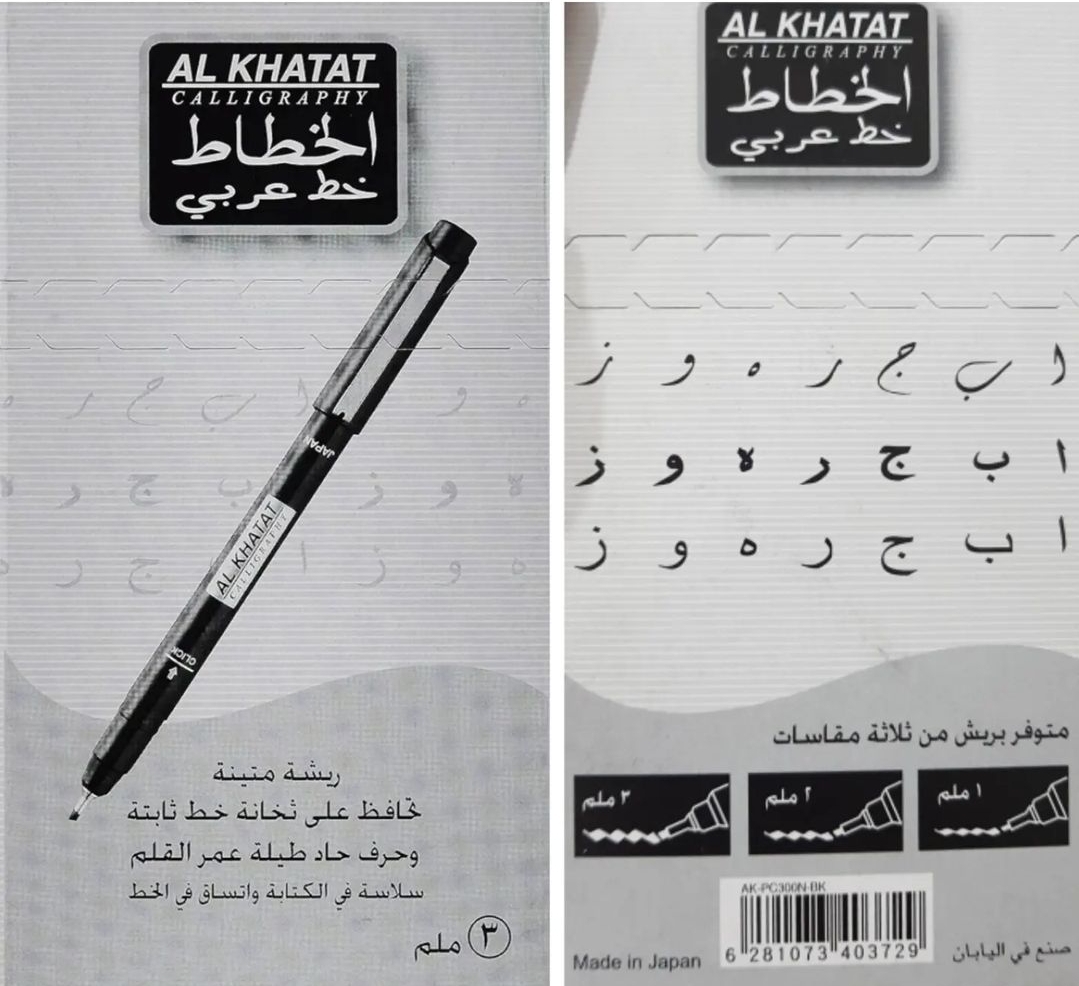 AL KHATAT
CALLIGRAPHY
الخطاط
خط عربي
JAPAN
AL KHATAT
CALLIGRAPHY
CLICK
ريشة متينة
تحافظ على ثخانة خط ثابتة
وحرف حاد طيلة عمر القلم
سلاسة في الكتابة واتساق في الخط
٣ ملم
AL KHATAT
CALLIGRAPHY
الخطاط
خط عربي
ا ب ج ر ه و ز
ا ب ج ر ه و ز
ا ب ج ر ه و ز
متوفر بريش من ثلاثة مقاسات
١ ملم
٢ ملم
٣ ملم
AK-PC300N-BK
6 281073 403729
Made in Japan
صنع في اليابان